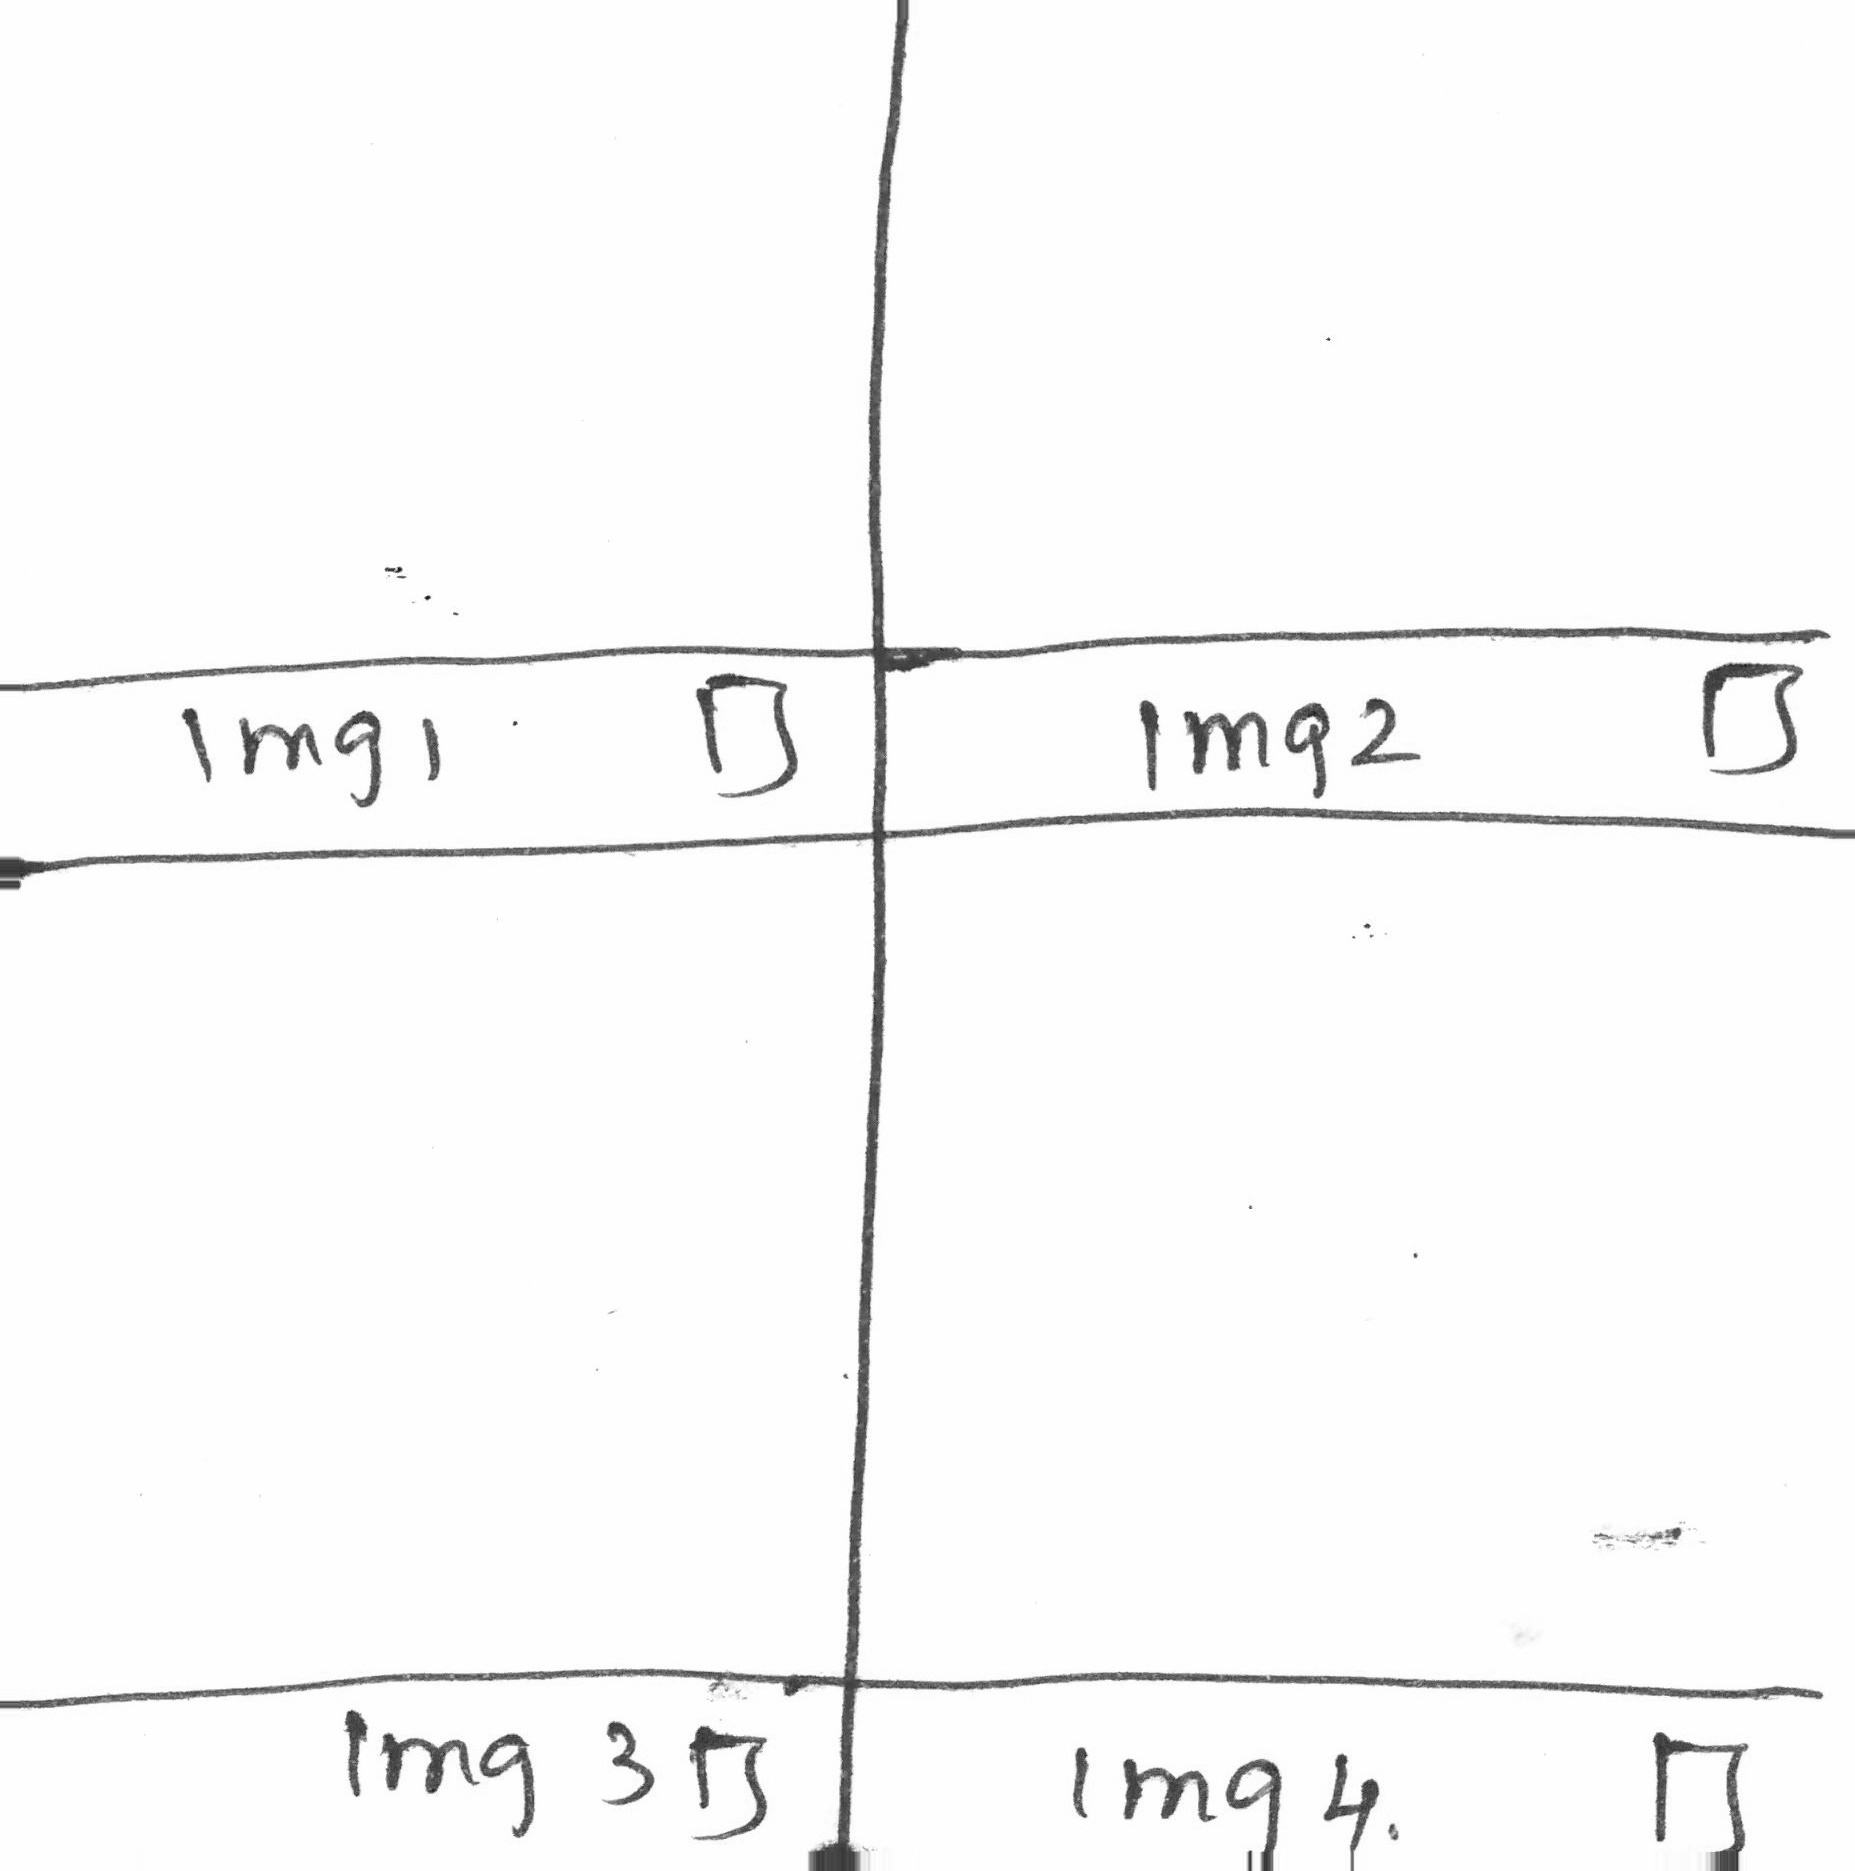 Img1
Img2
Img 3
Img 4.